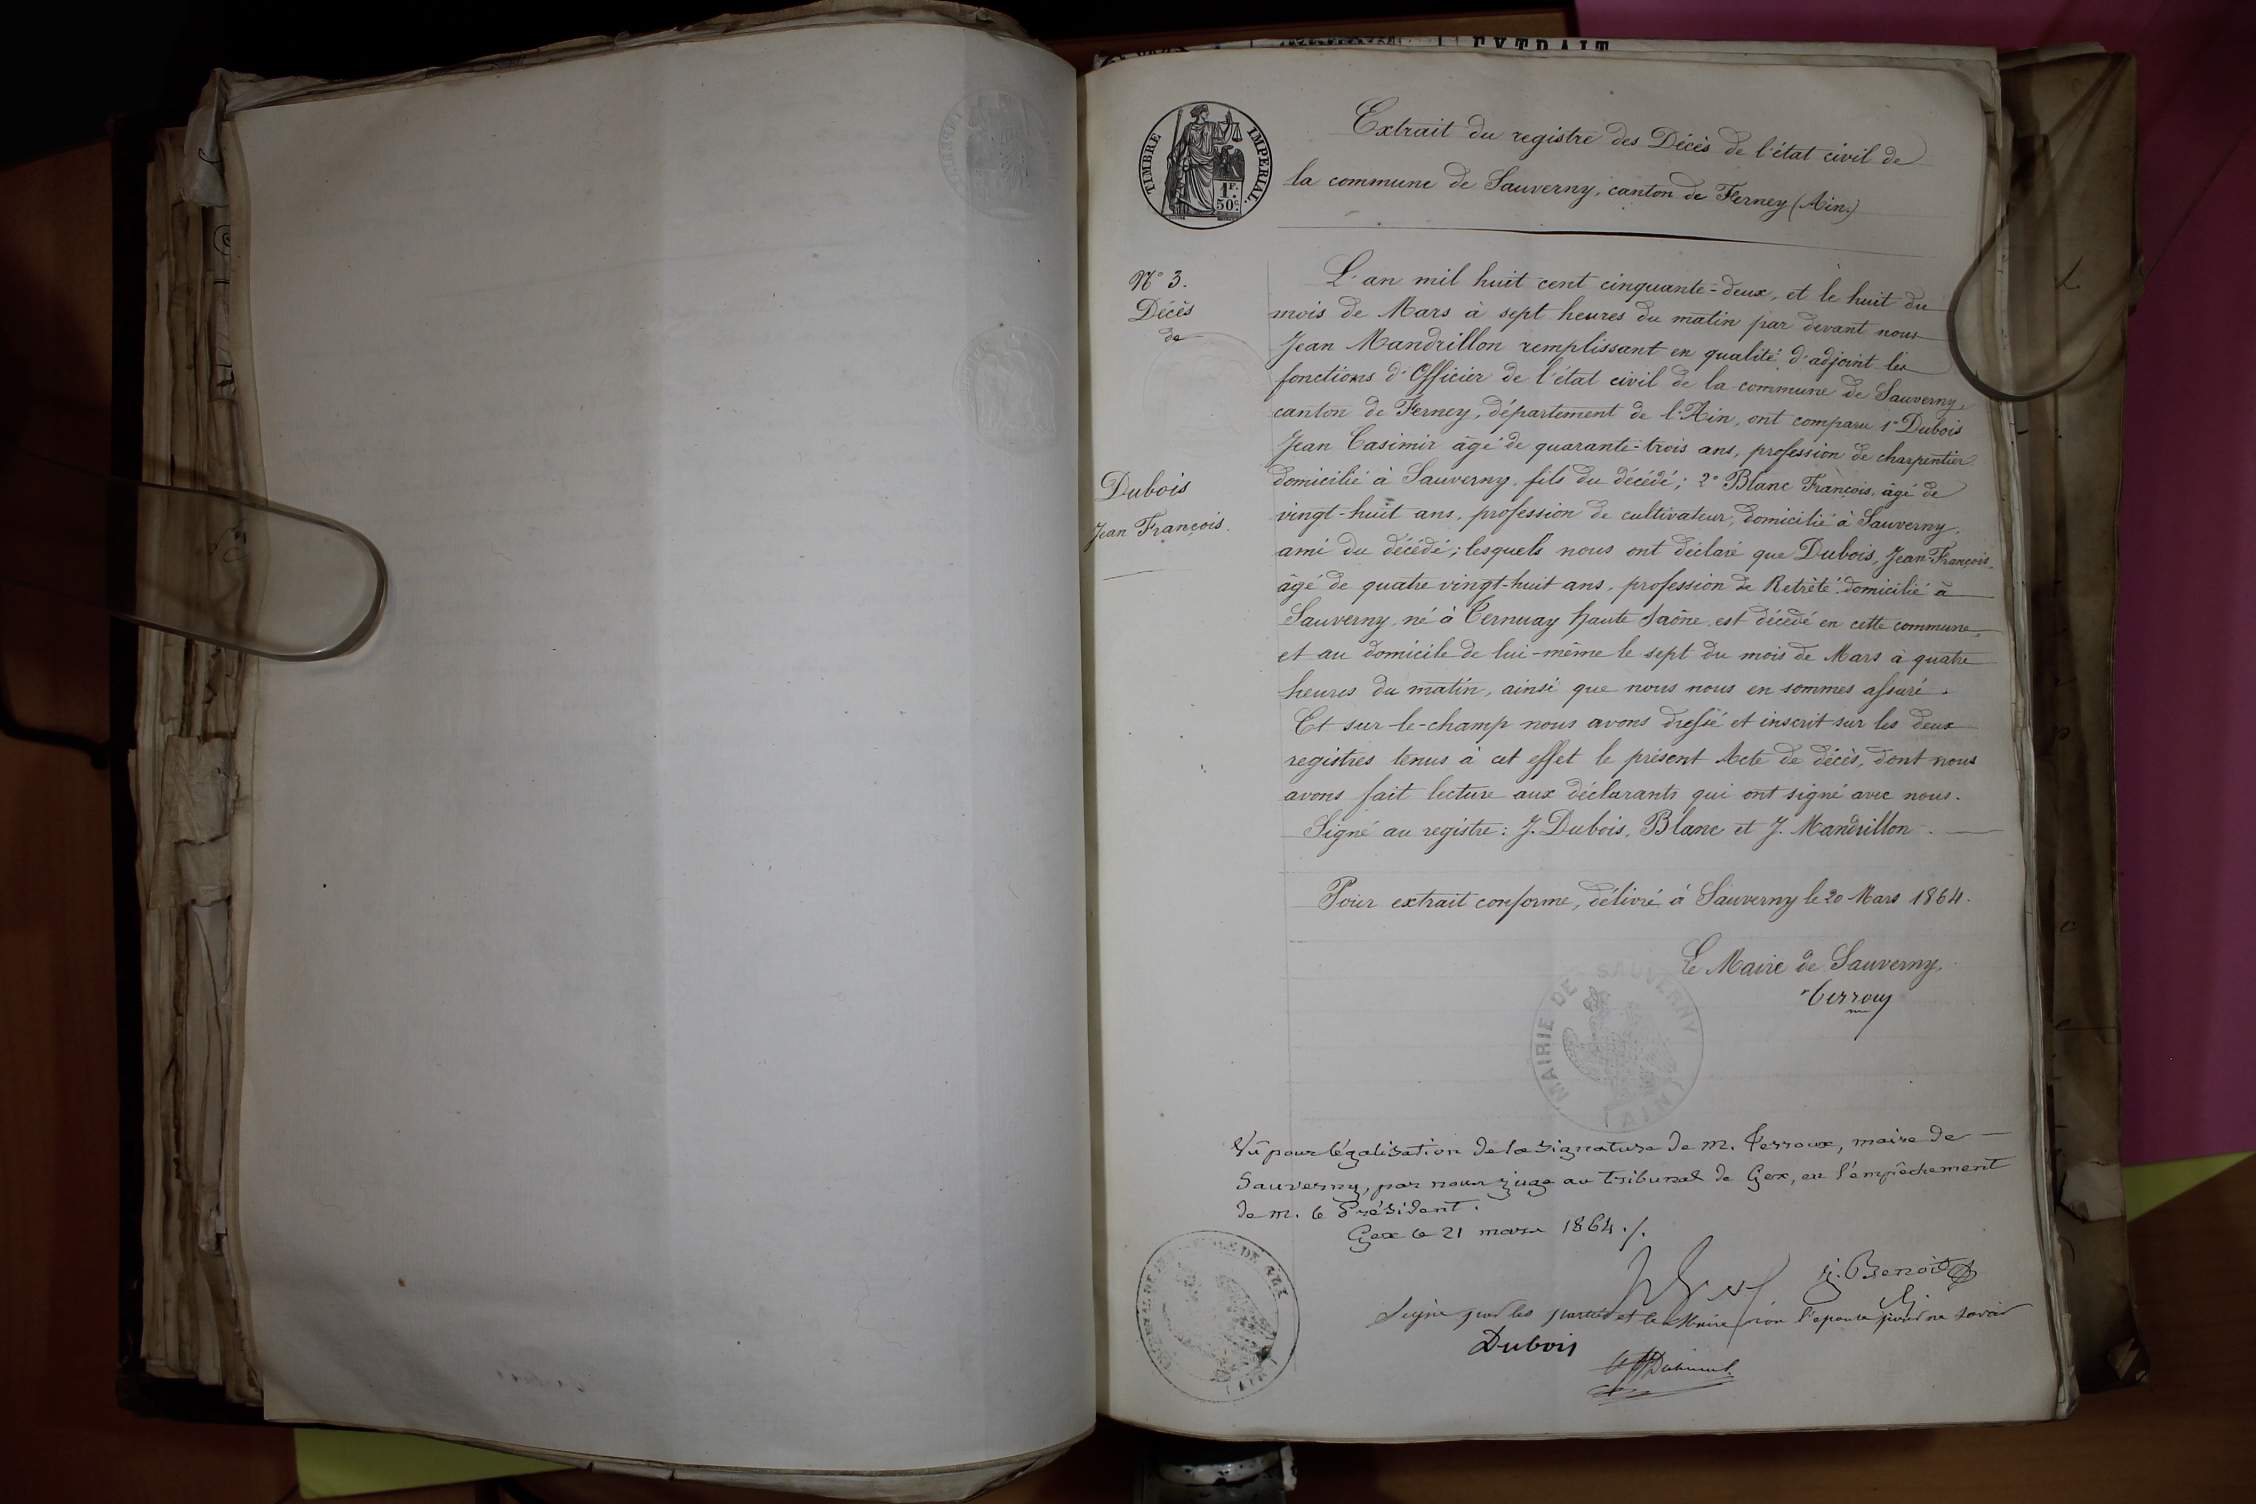 EXTRAIT
TIMBRE IMPERIAL.
1F.
50C.
Extrait du registre des Décès de l'état civil de
la commune de Sauverny, canton de Ferney (Ain.)
N° 3.
Décès
de
Dubois
Jean François.
L'an mil huit cent cinquante-deux, et le huit du
mois de Mars à sept heures du matin par devant nous
Jean Mandrillon remplissant en qualité d'adjoint les
fonctions d'Officier de l'état civil de la commune de Sauverny,
canton de Ferney, département de l'Ain, ont comparu 1° Dubois
Jean Casimir âgé de quarante-trois ans, profession de charpentier
domicilié à Sauverny, fils du décédé; 2° Blanc François, âgé de
vingt-huit ans, profession de cultivateur, domicilié à Sauverny,
ami du décédé; lesquels nous ont déclaré que Dubois, Jean-François,
âgé de quatre vingt-huit ans, profession de Retrèté domicilié à
Sauverny, né à Ternuay haute Saône, est décédé en cette commune,
et au domicile de lui-même le sept du mois de Mars à quatre
heures du matin, ainsi que nous nous en sommes assuré.
Et sur-le-champ nous avons dressé et inscrit sur les deux
registres tenus à cet effet le présent Acte de décès, dont nous
avons fait lecture aux déclarants qui ont signé avec nous.
Signé au registre: J. Dubois, Blanc et J. Mandrillon.
Pour extrait conforme, délivré à Sauverny le 20 Mars 1864.
Le Maire de Sauverny,
Terroux
MAIRIE DE SAUVERNY (AIN)
Vu pour légalisation de la signature de m. Terroux, maire de
Sauverny, par nous juge au tribunal de Gex, en l'empêchement
de m. le Président.
Gex le 21 mars 1864./.
j. Benoit
Signé par les parties et le Maire non l'épouse pour ne savoir
Dubois